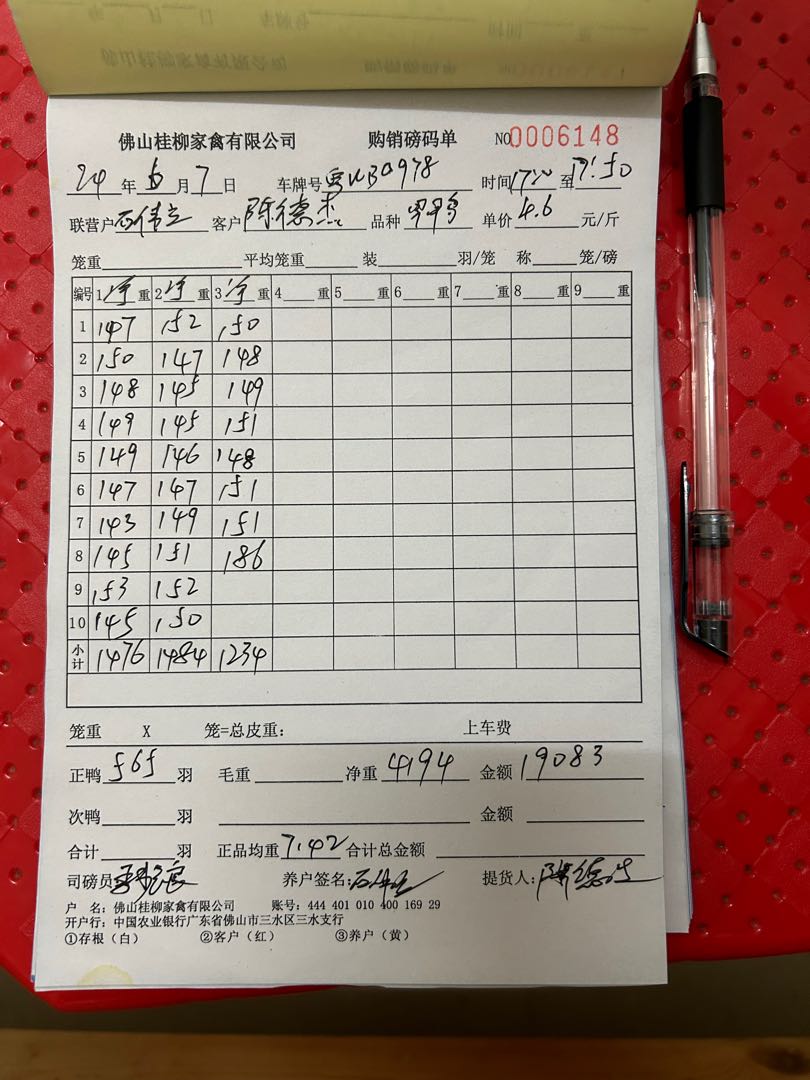 佛山桂柳家禽有限公司 购销磅码单 NO 0006148
24年6月7日 车牌号 时间 至17:50
联营户石伟立 客户陈德杰 品种 单价4.6元/斤
笼重 平均笼重 装 羽/笼 称 笼/磅
编号 1净重 2净重 3净重 4 重 5 重 6 重 7 重 8 重 9 重
1 147 152 150
2 150 147 148
3 148 145 149
4 149 145 151
5 149 146 148
6 147 147 151
7 143 149 151
8 145 151 186
9 153 152
10 145 150
小计 1476 1484 1234
笼重 X 笼=总皮重: 上车费
正鸭565羽 毛重 净重4194 金额19083
次鸭 羽 金额
合计 羽 正品均重7.42 合计总金额
司磅员 养户签名: 提货人:
户 名: 佛山桂柳家禽有限公司 账号: 444 401 010 400 169 29
开户行: 中国农业银行广东省佛山市三水区三水支行
①存根(白) ②客户(红) ③养户(黄)